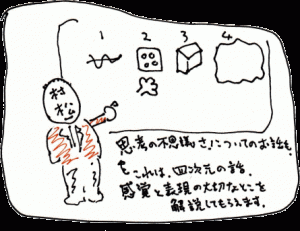 1 2 3 4
村松
思考の不思議さについてのお話を
これは、四次元の話
感覚と表現の大切なとこを
解説してもらえます。